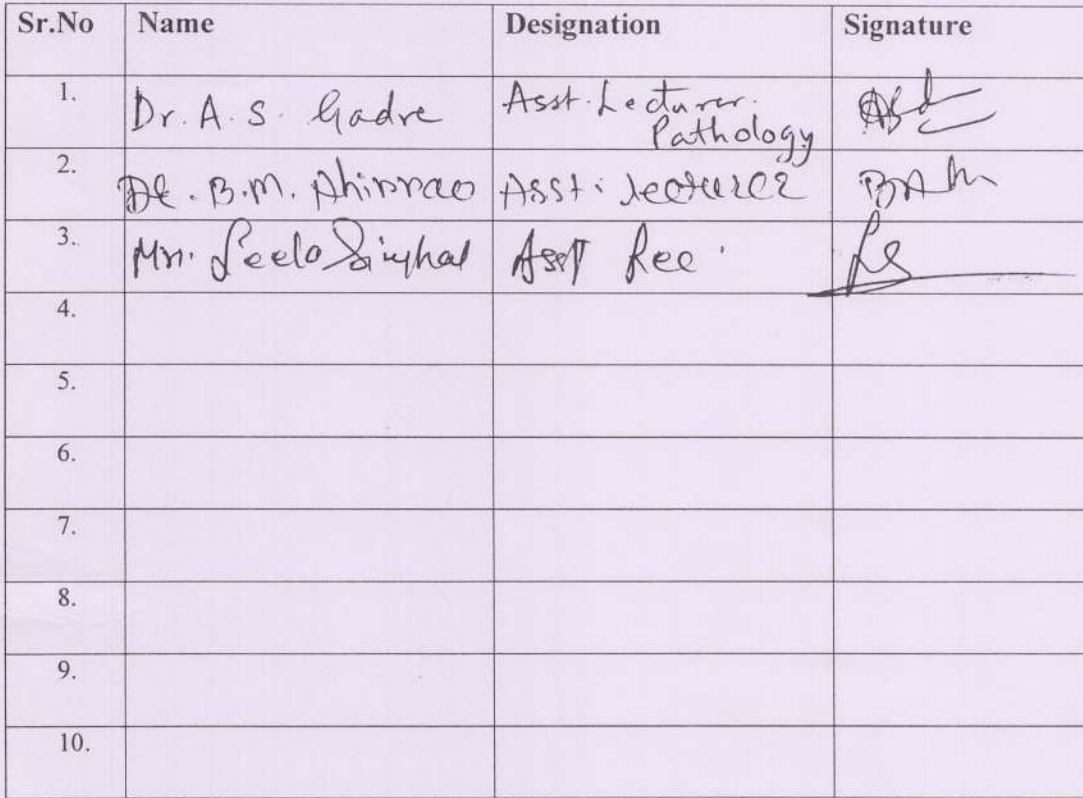 Sr.No Name Designation Signature
1. Dr. A. S. Gadre Asst. Lecturer. Pathology
2. Dr. B.M. Ahirrao Asst. Lecturer
3. Leela Singhal Asst Lec.
4.
5.
6.
7.
8.
9.
10.